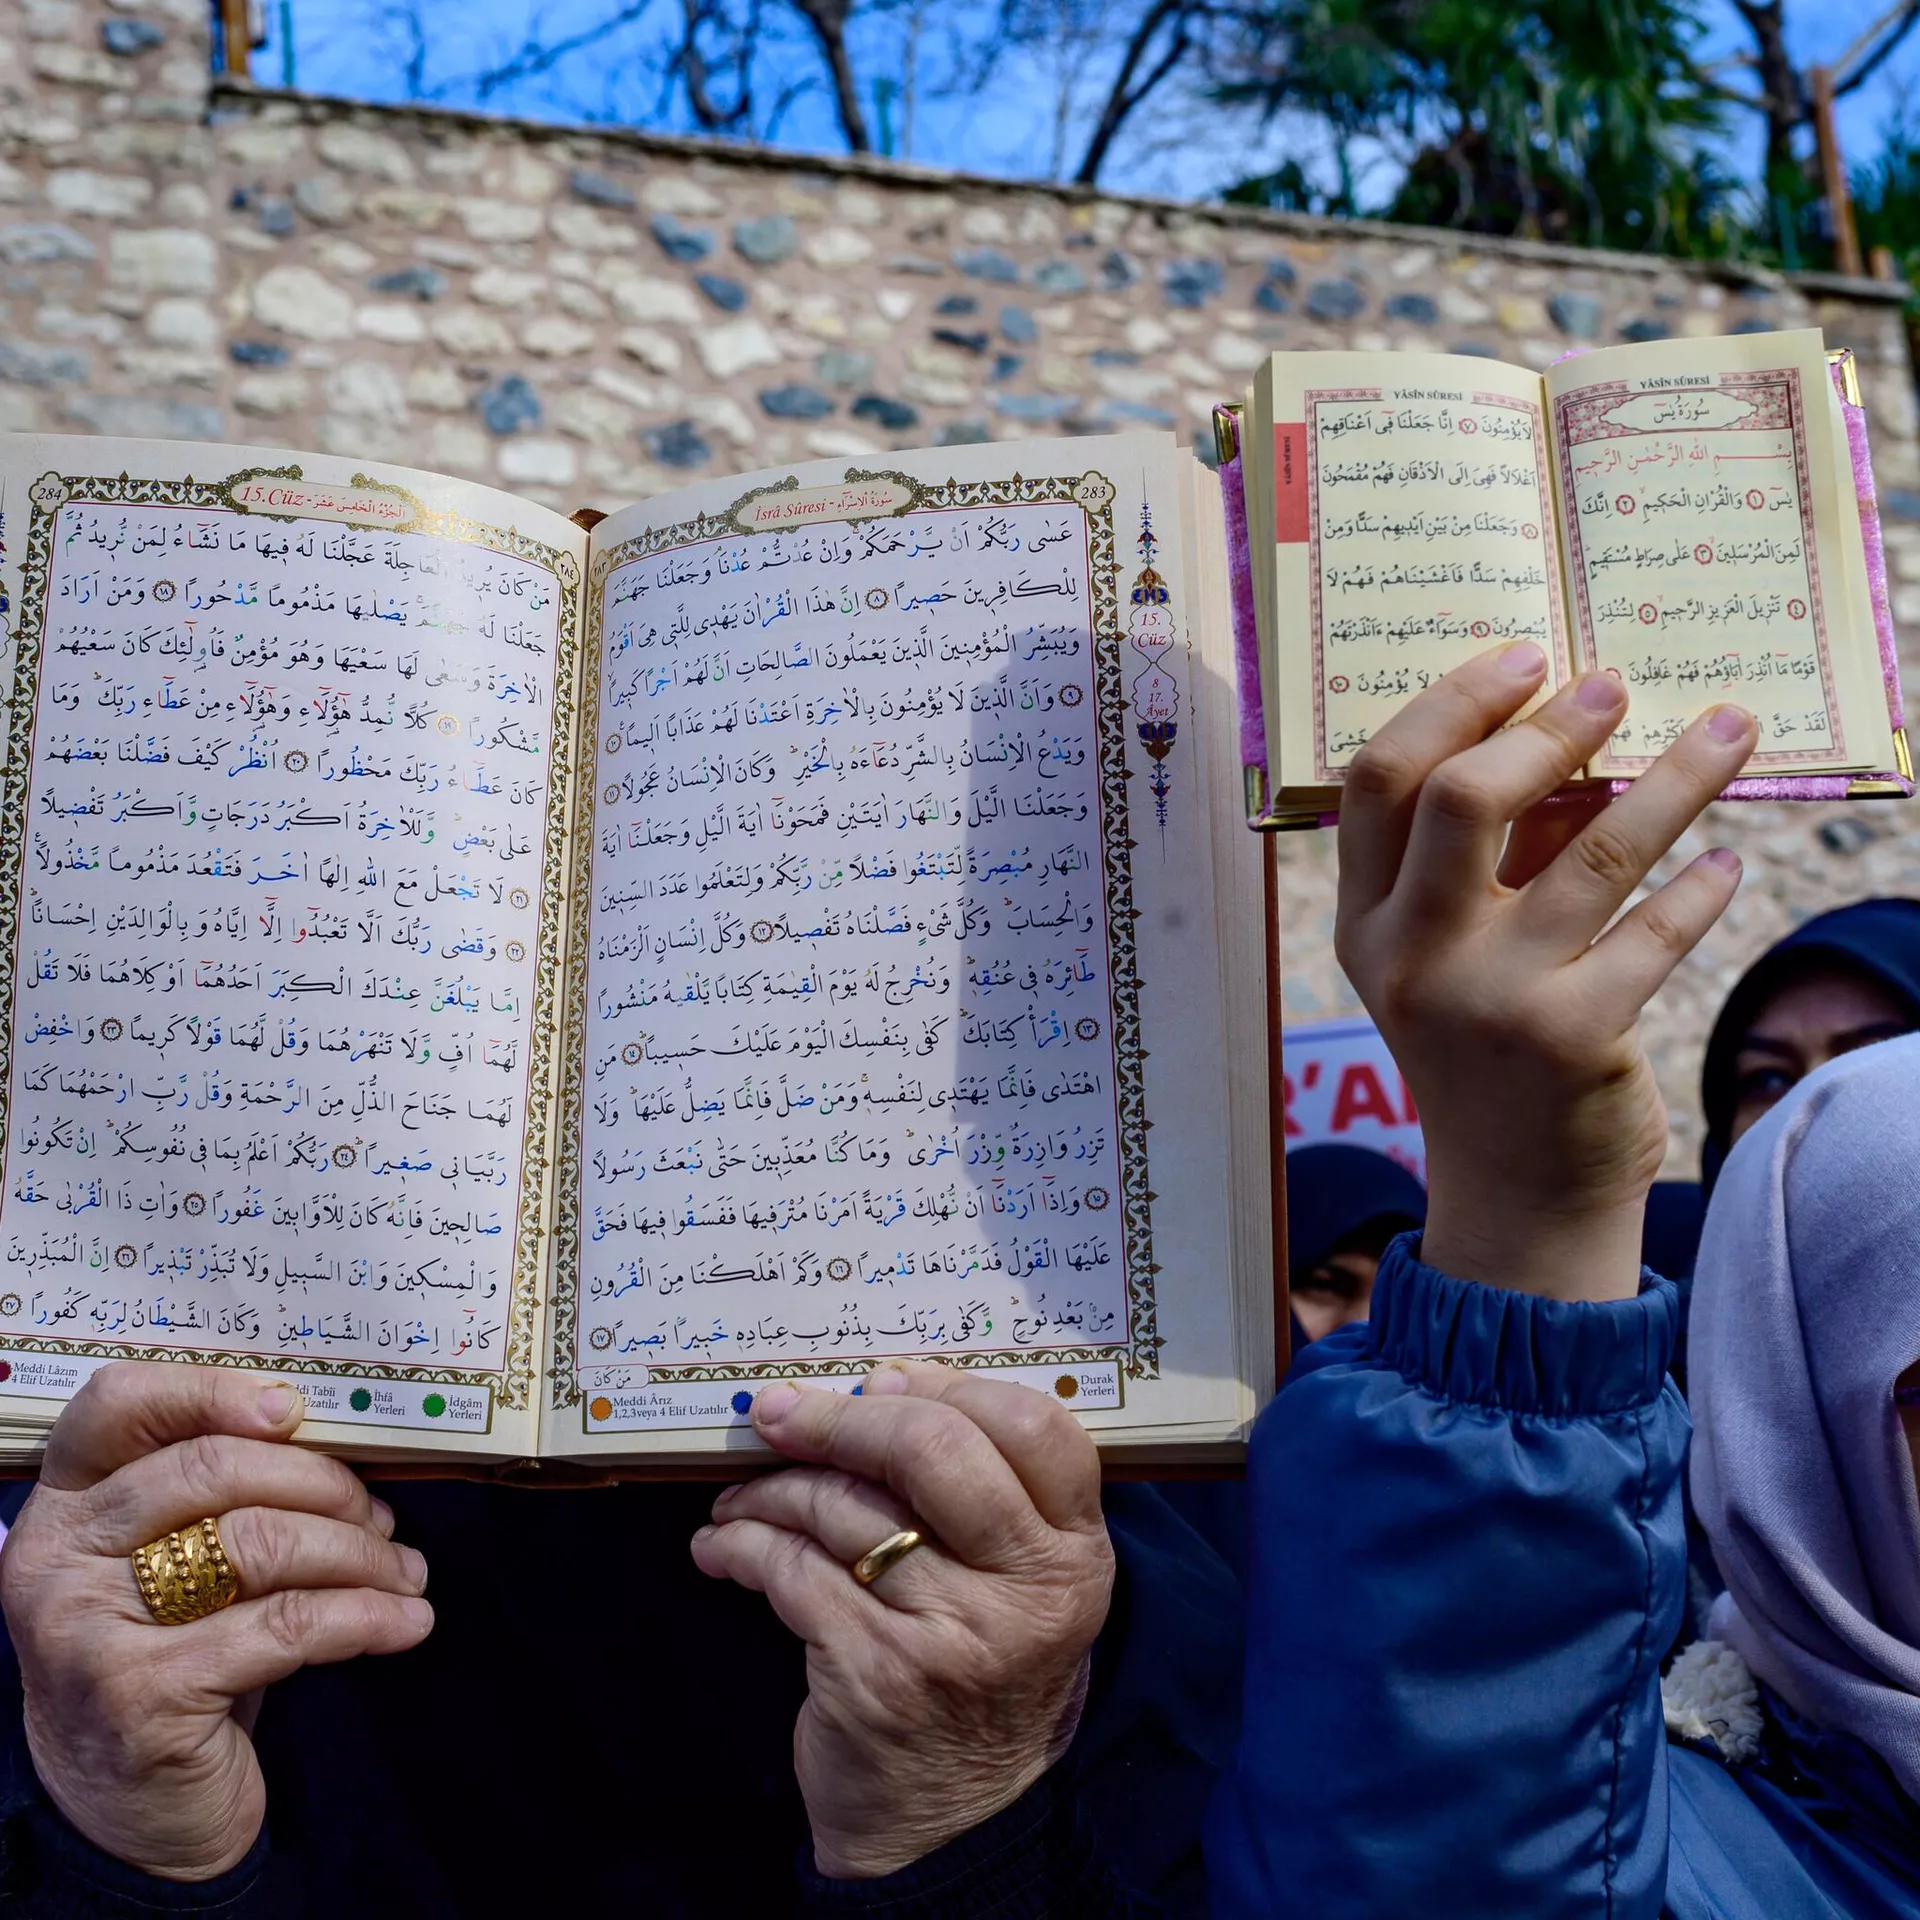 283
İsrâ Sûresi - سُورَةُ الْاِسْرَٓاءِ
عَسٰى رَبُّكُمْ اَنْ يَرْحَمَكُمْۚ وَاِنْ عُدْتُمْ عُدْنَاۢ وَجَعَلْنَا جَهَنَّمَ
لِلْكَافِرٖينَ حَصٖيراً ٨ اِنَّ هٰذَا الْقُرْاٰنَ يَهْدٖى لِلَّتٖى هِىَ اَقْوَمُ
وَيُبَشِّرُ الْمُؤْمِنٖينَ الَّذٖينَ يَعْمَلُونَ الصَّالِحَاتِ اَنَّ لَهُمْ اَجْراً كَبٖيراً
٩ وَاَنَّ الَّذٖينَ لَا يُؤْمِنُونَ بِالْاٰخِرَةِ اَعْتَدْنَا لَهُمْ عَذَاباً اَلٖيماً ١٠
وَيَدْعُ الْاِنْسَانُ بِالشَّرِّ دُعَٓاءَهُ بِالْخَيْرِؕ وَكَانَ الْاِنْسَانُ عَجُولاً ١١
وَجَعَلْنَا الَّيْلَ وَالنَّهَارَ اٰيَتَيْنِ فَمَحَوْنَٓا اٰيَةَ الَّيْلِ وَجَعَلْنَٓا اٰيَةَ
النَّهَارِ مُبْصِرَةً لِتَبْتَغُوا فَضْلاً مِنْ رَبِّكُمْ وَلِتَعْلَمُوا عَدَدَ السِّنٖينَ
وَالْحِسَابَؕ وَكُلَّ شَىْءٍ فَصَّلْنَاهُ تَفْصٖيلاً ١٢ وَكُلَّ اِنْسَانٍ اَلْزَمْنَاهُ
طَٓائِرَهُ فٖى عُنُقِهٖؕ وَنُخْرِجُ لَهُ يَوْمَ الْقِيٰمَةِ كِتَاباً يَلْقٰيهُ مَنْشُوراً
١٣ اِقْرَأْ كِتَابَكَؕ كَفٰى بِنَفْسِكَ الْيَوْمَ عَلَيْكَ حَسٖيباًؕ ١٤ مَنِ
اهْتَدٰى فَاِنَّمَا يَهْتَدٖى لِنَفْسِهٖۚ وَمَنْ ضَلَّ فَاِنَّمَا يَضِلُّ عَلَيْهَاؕ وَلَا
تَزِرُ وَازِرَةٌ وِزْرَ اُخْرٰىؕ وَمَا كُنَّا مُعَذِّبٖينَ حَتّٰى نَبْعَثَ رَسُولاً
١٥ وَاِذَٓا اَرَدْنَٓا اَنْ نُهْلِكَ قَرْيَةً اَمَرْنَا مُتْرَفٖيهَا فَفَسَقُوا فٖيهَا فَحَقَّ
عَلَيْهَا الْقَوْلُ فَدَمَّرْنَاهَا تَدْمٖيراً ١٦ وَكَمْ اَهْلَكْنَا مِنَ الْقُرُونِ
مِنْ بَعْدِ نُوحٍؕ وَكَفٰى بِرَبِّكَ بِذُنُوبِ عِبَادِهٖ خَبٖيراً بَصٖيراً ١٧
مَنْ كَانَ
٢٨٣
15.
Cüz
8
17.
Âyet
Meddi Ârız
1,2,3veya 4 Elif Uzatılır
Durak
Yerleri
284
15.Cüz - اَلْجُزْءُ الْخَامِسَ عَشَرَ
مَنْ كَانَ يُرٖيدُ الْعَاجِلَةَ عَجَّلْنَا لَهُ فٖيهَا مَا نَشَٓاءُ لِمَنْ نُرٖيدُ ثُمَّ
جَعَلْنَا لَهُ جَهَنَّمَۚ يَصْلٰيهَا مَذْمُوماً مَدْحُوراً ١٨ وَمَنْ اَرَادَ
الْاٰخِرَةَ وَسَعٰى لَهَا سَعْيَهَا وَهُوَ مُؤْمِنٌ فَاُو۬لٰٓئِكَ كَانَ سَعْيُهُمْ
مَشْكُوراً ١٩ كُلاًّ نُمِدُّ هٰٓؤُ۬لَٓاءِ وَهٰٓؤُ۬لَٓاءِ مِنْ عَطَٓاءِ رَبِّكَؕ وَمَا
كَانَ عَطَٓاءُ رَبِّكَ مَحْظُوراً ٢٠ اُنْظُرْ كَيْفَ فَضَّلْنَا بَعْضَهُمْ
عَلٰى بَعْضٍؕ وَلَلْاٰخِرَةُ اَكْبَرُ دَرَجَاتٍ وَاَكْبَرُ تَفْضٖيلاً
٢١ لَا تَجْعَلْ مَعَ اللّٰهِ اِلٰهاً اٰخَرَ فَتَقْعُدَ مَذْمُوماً مَخْذُولاً
٢٢ وَقَضٰى رَبُّكَ اَلَّا تَعْبُدُٓوا اِلَّٓا اِيَّاهُ وَبِالْوَالِدَيْنِ اِحْسَاناًؕ
اِمَّا يَبْلُغَنَّ عِنْدَكَ الْكِبَرَ اَحَدُهُمَٓا اَوْ كِلَاهُمَا فَلَا تَقُلْ
لَهُمَٓا اُفٍّ وَلَا تَنْهَرْهُمَا وَقُلْ لَهُمَا قَوْلاً كَرٖيماً ٢٣ وَاخْفِضْ
لَهُمَا جَنَاحَ الذُّلِّ مِنَ الرَّحْمَةِ وَقُلْ رَبِّ ارْحَمْهُمَا كَمَا
رَبَّيَانٖى صَغٖيراًؕ ٢٤ رَبُّكُمْ اَعْلَمُ بِمَا فٖى نُفُوسِكُمْؕ اِنْ تَكُونُوا
صَالِحٖينَ فَاِنَّهُ كَانَ لِلْاَوَّابٖينَ غَفُوراً ٢٥ وَاٰتِ ذَا الْقُرْبٰى حَقَّهُ
وَالْمِسْكٖينَ وَابْنَ السَّبٖيلِ وَلَا تُبَذِّرْ تَبْذٖيراً ٢٦ اِنَّ الْمُبَذِّرٖينَ
كَانُٓوا اِخْوَانَ الشَّيَاطٖينِؕ وَكَانَ الشَّيْطَانُ لِرَبِّهٖ كَفُوراً ٢٧
٢٨٤
Meddi Lâzım
4 Elif Uzatılır
İhfâ
Yerleri
İdgâm
Yerleri
YÂSÎN SÛRESİ
سُورَةُ يٰسٓ
بِسْمِ اللّٰهِ الرَّحْمٰنِ الرَّحٖيمِ
يٰسٓ ١ وَالْقُرْاٰنِ الْحَكٖيمِ ٢ اِنَّكَ
لَمِنَ الْمُرْسَلٖينَ ٣ عَلٰى صِرَاطٍ مُسْتَقٖيمٍ
٤ تَنْزٖيلَ الْعَزٖيزِ الرَّحٖيمِ ٥ لِتُنْذِرَ
قَوْمًا مَٓا اُنْذِرَ اٰبَٓاؤُهُمْ فَهُمْ غَافِلُونَ
لَقَدْ حَقَّ اَكْثَرِهِمْ فَهُمْ
YÂSÎN SÛRESİ
لَايُؤْمِنُونَ ٧ اِنَّا جَعَلْنَا فٖٓى اَعْنَاقِهِمْ
اَغْلَالاً فَهِىَ اِلَى الْاَذْقَانِ فَهُمْ مُقْمَحُونَ
٨ وَجَعَلْنَا مِنْ بَيْنِ اَيْدٖيهِمْ سَدًّا وَمِنْ
خَلْفِهِمْ سَدًّا فَاَغْشَيْنَاهُمْ فَهُمْ لَا
يُبْصِرُونَ ٩ وَسَوَٓاءٌ عَلَيْهِمْ ءَاَنْذَرْتَهُمْ
لَا يُؤْمِنُونَ ١٠
خَشِىَ